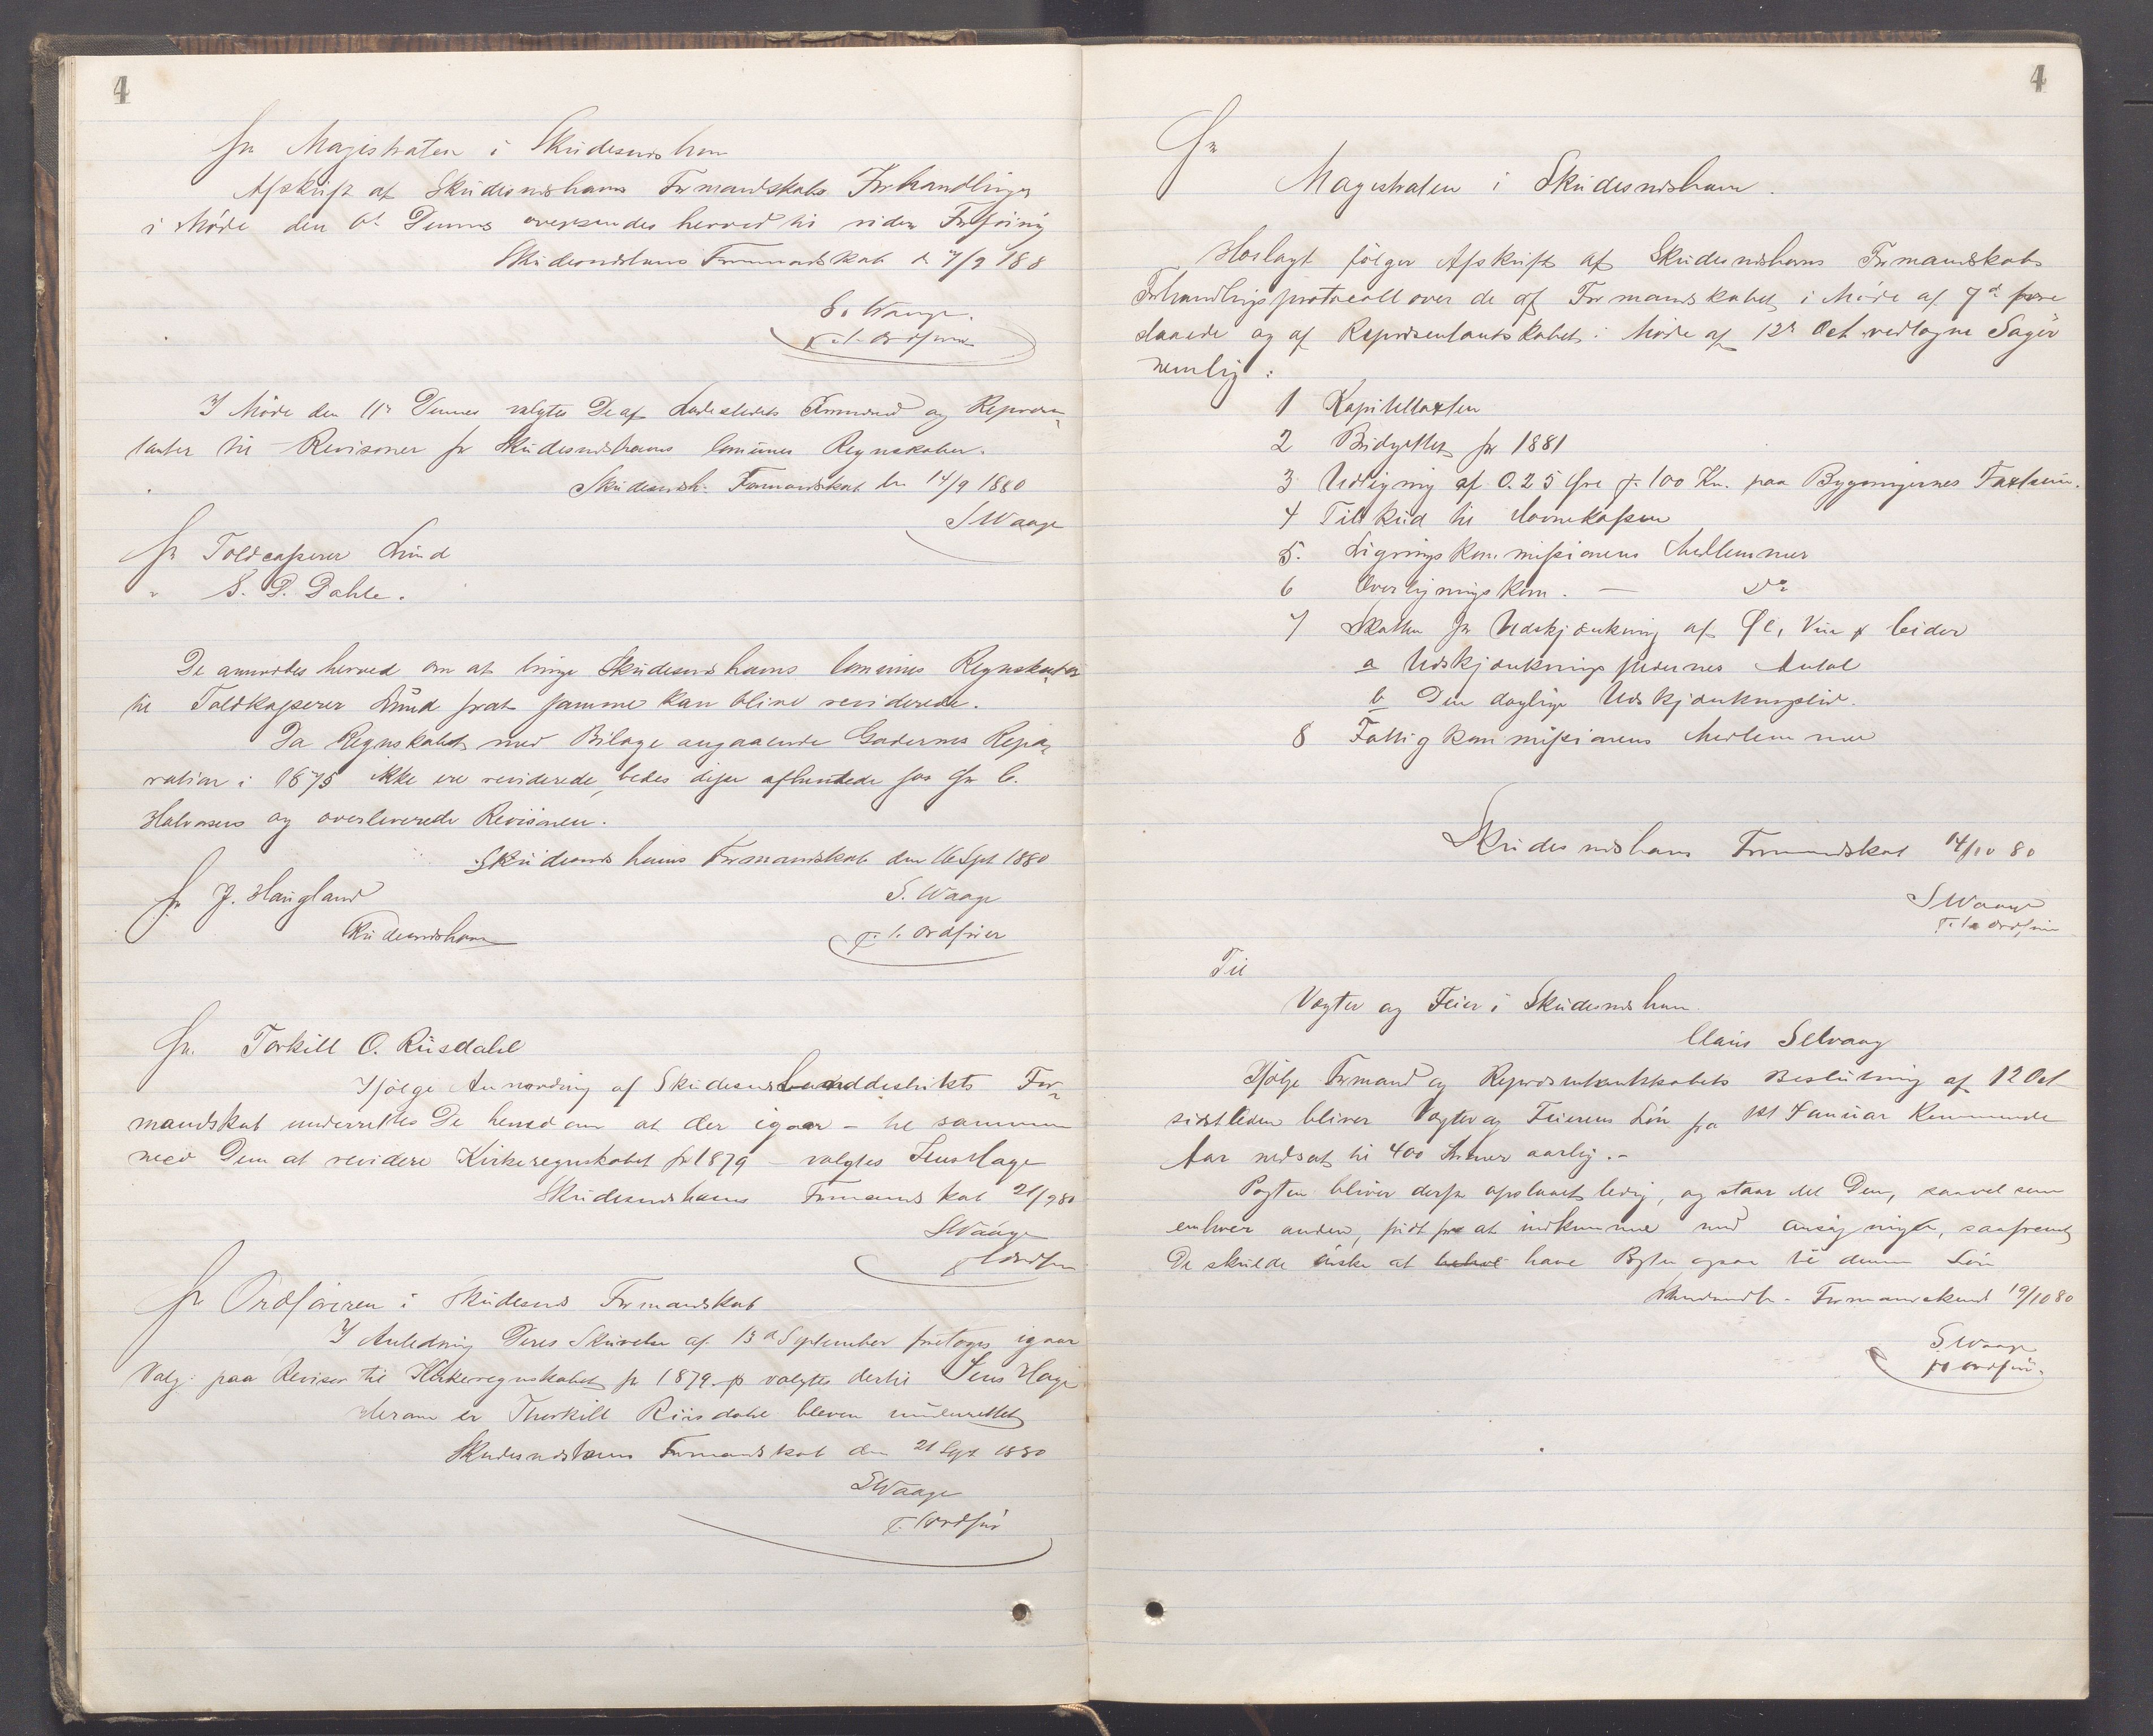 4
Hr Magistraten i Skudesneshavn
Afskrift af Skudesneshavns Formandskabs Forhandlinger
i Møde den 6te Dennes oversendes herved til videre Forføining
Skudesneshavns Formandskab d 7/9 188
S. Waage.
p.t. Ordfører
I Møde den 11te Dennes valgtes De af Ladestedets Formænd og Repræsen-
tanter til Revisorer for Skudesneshavns Comunes Regnskaber.
Skudesnesh. Formandskab den 14/9 1880
S Waage
Hr Toldcasserer Lund
" S. D. Dahle.
De anmodes herved om at bringe Skudesneshavns Comunes Regnskaber
til Toldkasserer Lund forat samme kan blive reviderede.
Da Regnskabet med Bilage angaaende Gadernes Repa-
ration i 1875 ikke er reviderede, bedes disse afhentede hos Hr C.
Halvorsens og overleverede Revisionen.
Skudesneshavns Formandskab den 16 Sept 1880
Hr J. Haugland S. Waage
Skudesneshavn p.t. Ordfører
Hr. Torkill O. Riisdahl
Ifølge Anmodning af Skudesnes Landdistrikts For-
mandskab underrettes De herved om at der igaar - til sammen
med Dem at revidere Kirkeregnskabet for 1879 - valgtes Jens Hage
Skudesneshavns Formandskab 21/9 80
S Waage
p t Ordfører
Hr Ordføreren i Skudesnes Formandskab
I Anledning Deres Skrivelse af 13de September foretoges igaar
Valg paa Revisor til Kirkeregnskabet for 1879 - og valgtes dertil Jens Hage
Herom er Thorkill Riisdahl bleven underrettet
Skudesneshavns Formandskab den 21 Sept 1880
S Waage
p.t. Ordfør
4
Hr
Magistraten i Skudesneshavn.
Hoslagt følger Afskrift af Skudesneshavns Formandskabs
Forhandlingsprotocoll over de af Formandskabet i Møde af 7de fore
slaaede og af Repræsentantskabet i Møde af 12te Oct vedtagne Sager
nemlig:
1 Kapiteltaxten
2 Budgettet for 1881
3 Udligning af 0.25 Øre pr 100 Kr. paa Bygningernes Taxtsum.
4 Tilskud til Havnekassen
5. Ligningskommissionens Medlemmer
6 Overligningskom. — do
7 Skatten for Udskjænkning af Øl, Vin & Cider
a Udskjænkningsstedernes Antal
b Den daglige Udskjænkningstid.
8 Fattigkommissionens Medlemmer
Skudesneshavns Formandskab 14/10 80
S Waage
p.t. Ordfører
Til
Vægter og Feier i Skudesneshavn
Claus Selvaag
Ifølge Formand og Repræsentantskabets Beslutning af 12 Oct
sidstleden bliver Vægter og Feierens Løn fra 1st Januar Kommende
Aar nedsat til 400 Kroner aarlig. -
Posten bliver derfor opslaaet ledig, og staar det Dem, saavel som
enhver anden, fridt for at indkomme med Ansøgninger, saafremt
De skulde ønske at have Posten ogsaa til denne Løn
Skudesnesh. Formandskab 19/10 80
S Waage
p t Ordfør.